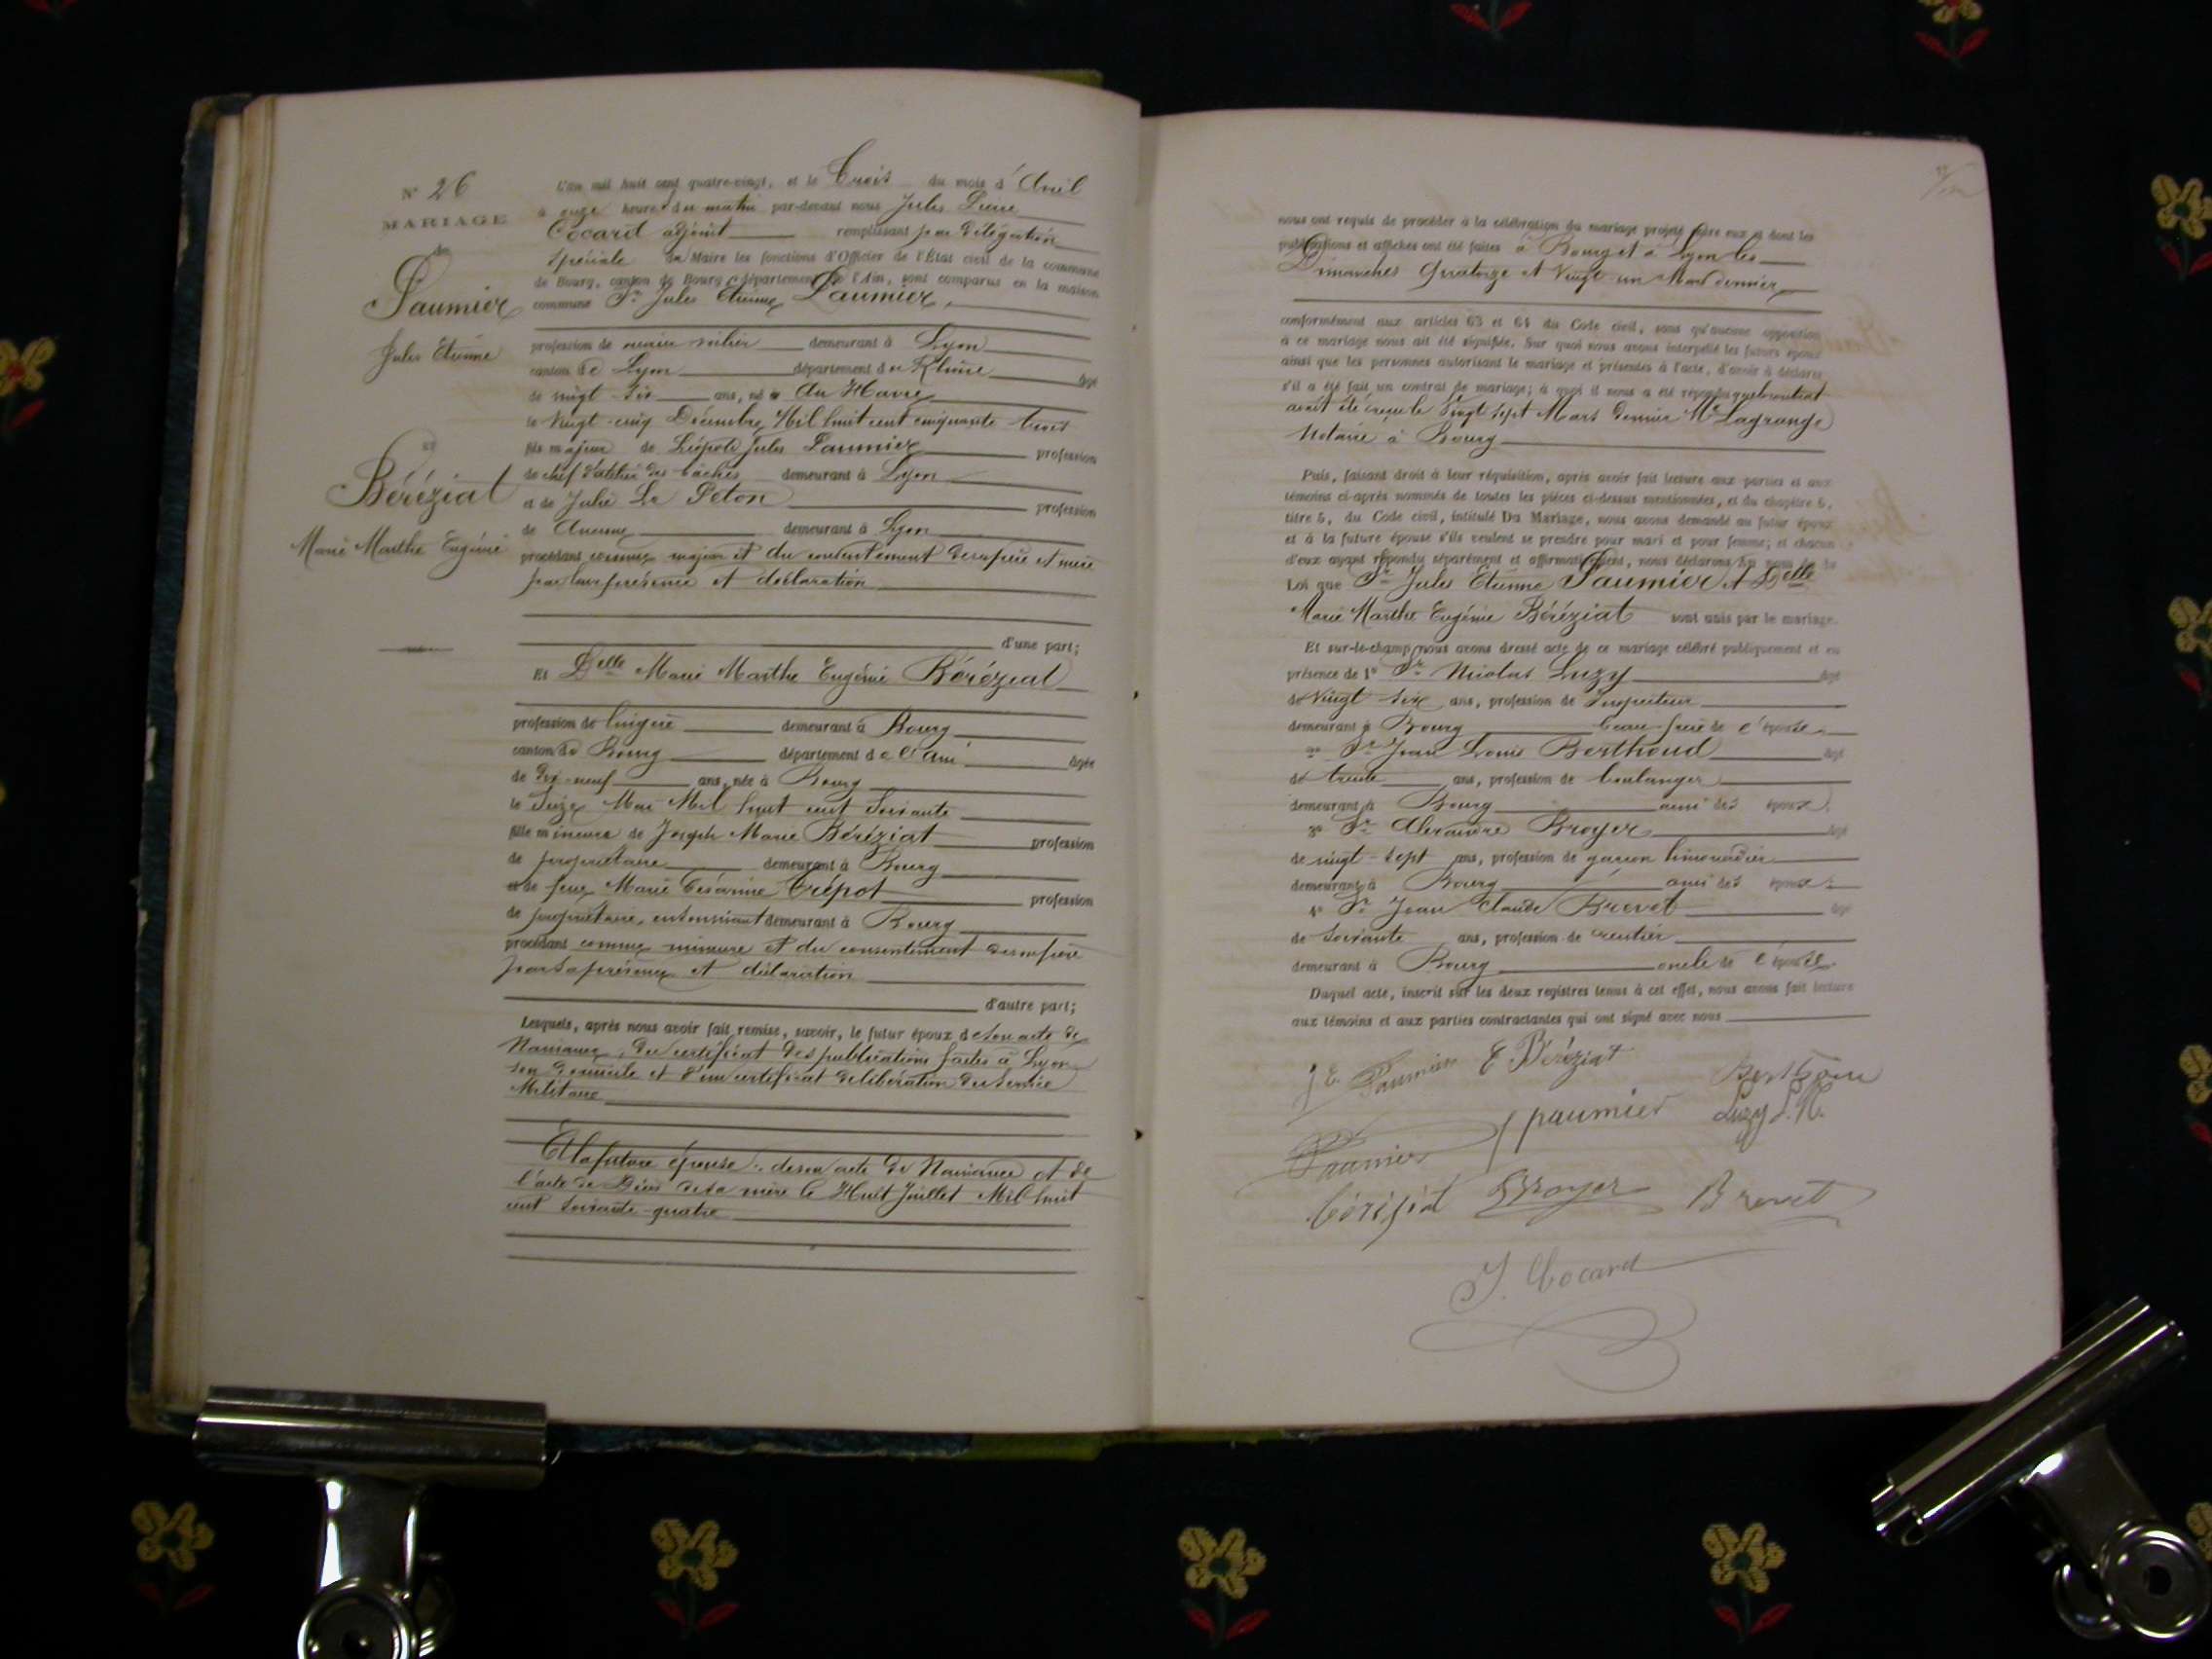 N° 26
MARIAGE
de
Paumier
Jules Etienne
et
Béréziat
Marie Marthe Eugénie
L'an mil huit cent quatre-vingt, et le Trois du mois d'Avril
à onze heures du matin par-devant nous Jules Pierre
Cocard adjoint remplissant par délégation
spéciale du Maire les fonctions d'Officier de l'État civil de la commune
de Bourg, canton de Bourg, département de l'Ain, sont comparus en la maison
commune Sr Jules Etienne Paumier,
profession de demeurant à Lyon
canton de Lyon département du Rhône âgé
de vingt-six ans, né au Havre
le vingt-cinq Décembre Mil huit cent cinquante trois
fils majeur de Léopold Jules Paumier profession
de chef d'atelier des bâches demeurant à Lyon
et de Julie Le Peton profession
de Aucune demeurant à Lyon
procédant comme majeur et du consentement de ses père et mère
par leur présence et déclaration
d'une part;
Et Delle Marie Marthe Eugénie Béréziat
profession de lingère demeurant à Bourg
canton de Bourg département de l'Ain âgée
de dix-neuf ans, née à Bourg
le Seize Mai Mil huit cent Soixante
fille mineure de Joseph Marie Béréziat profession
de propriétaire demeurant à Bourg
et de feue Marie Césarine Crépot profession
de propriétaire, en son vivant demeurant à Bourg
procédant comme mineure et du consentement de son père
par sa présence et déclaration
d'autre part;
Lesquels, après nous avoir fait remise, savoir, le futur époux de son acte de
Naissance, du certificat des publications faites à Lyon
son domicile et d'un certificat de libération du service
Militaire
Et la future épouse : de son acte de Naissance et de
l'acte de Décès de sa mère le Huit Juillet Mil huit
cent soixante-quatre
nous ont requis de procéder à la célébration du mariage projeté entre eux et dont les
publications et affiches ont été faites à Bourg et à Lyon les
Dimanches Quatorze et Vingt-un Mars dernier
conformément aux articles 63 et 64 du Code civil, sans qu'aucune opposition
à ce mariage nous ait été signifiée. Sur quoi nous avons interpellé les futurs époux
ainsi que les personnes autorisant le mariage et présentes à l'acte, d'avoir à déclarer
s'il a été fait un contrat de mariage; à quoi il nous a été répondu que le contrat
avait été reçu le Vingt sept Mars dernier Me Lagrange
Notaire à Bourg
Puis, faisant droit à leur réquisition, après avoir fait lecture aux parties et aux
témoins ci-après nommés de toutes les pièces ci-dessus mentionnées, et du chapitre 6,
titre 5, du Code civil, intitulé Du Mariage, nous avons demandé au futur époux
et à la future épouse s'ils veulent se prendre pour mari et pour femme; et chacun
d'eux ayant répondu séparément et affirmativement, nous déclarons au nom de la
Loi que Sr Jules Etienne Paumier et Delle
Marie Marthe Eugénie Béréziat sont unis par le mariage.
Et sur-le-champ nous avons dressé acte de ce mariage célébré publiquement et en
présence de 1° Sr Nicolas Luzy âgé
de vingt-six ans, profession de Inspecteur
demeurant à Bourg beau-frère de l'épouse
2° Sr Jean Louis Berthoud âgé
de trente ans, profession de boulanger
demeurant à Bourg ami des époux.
3° Sr Alexandre Broyer âgé
de vingt-sept ans, profession de garçon limonadier
demeurant à Bourg ami des époux.
4° Sr Jean Claude Brevet âgé
de soixante ans, profession de rentier
demeurant à Bourg oncle de l'épouse
Duquel acte, inscrit sur les deux registres tenus à cet effet, nous avons fait lecture
aux témoins et aux parties contractantes qui ont signé avec nous
J E. Paumier E. Béréziat
J paumier Luzy
Paumier
Béréziat Broyer Brevet
J. Cocard